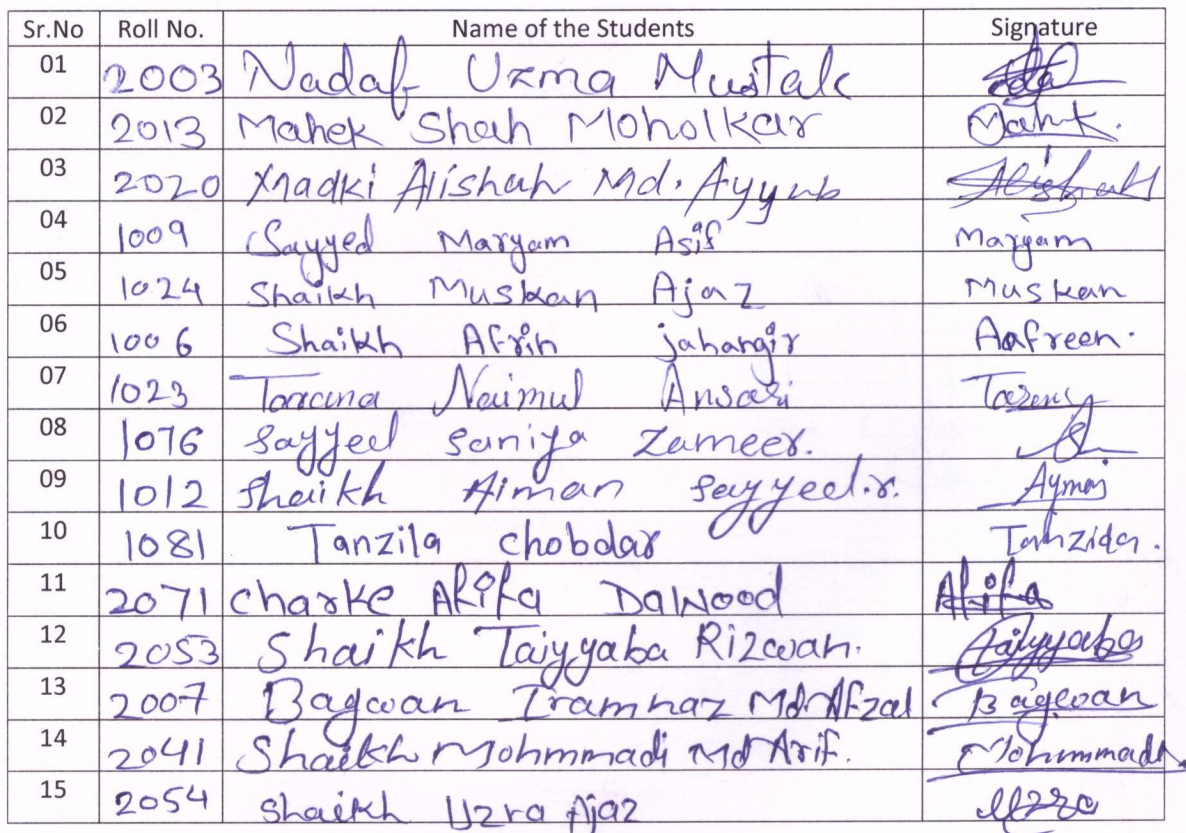 Sr.No Roll No. Name of the Students Signature
01 2003 Nadaf Uzma Mustak
02 2013 Mahek Shah Moholkar Mahek.
03 2020 Alishah Md. Ayyub Alishah
04 1009 Sayyed Maryam Asif Maryam
05 1024 Shaikh Muskan Ajaz Muskan
06 1006 Shaikh Afrin jahangir Aafreen.
07 1023 Tarana Naimul Ansari
08 1076 Sayyed Saniya Zameer.
09 1012 Shaikh Aiman Sayyed.r.
10 1081 Tanzila Chobdar
11 2071 Charke Afifa Dawood Afifa
12 2053 Shaikh Taiyyaba Rizwan. Taiyyaba
13 2007 Bagwan Iramnaz Md Afzal Bagwan
14 2041 Shaikh Mohmmadi Md Arif. Mohmmadi
15 2054 Shaikh Uzra Ajaz Uzra